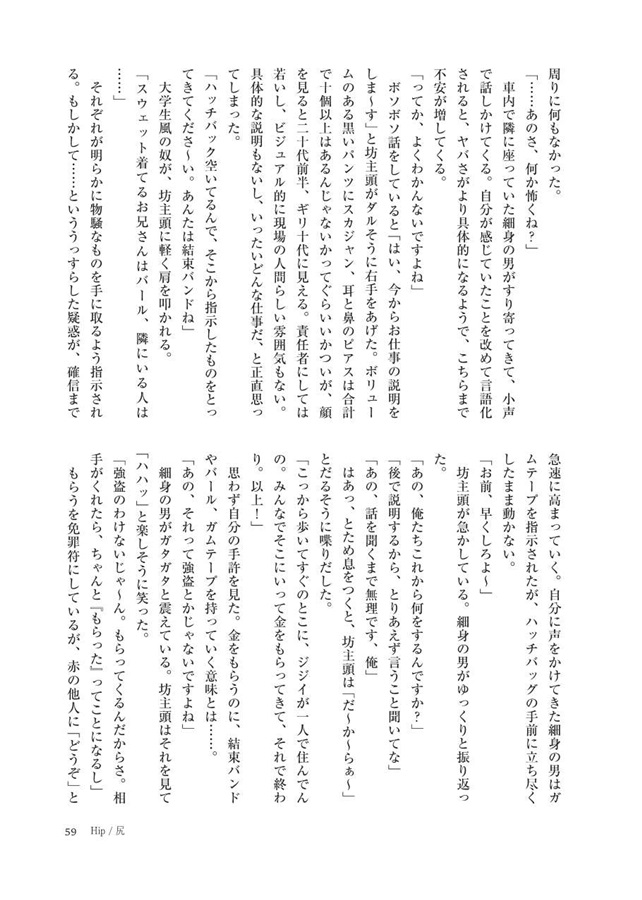 周りに何もなかった。
「……あのさ、何か怖くね?」
車内で隣に座っていた細身の男がすり寄ってきて、小声
で話しかけてくる。自分が感じていたことを改めて言語化
されると、ヤバさがより具体的になるようで、こちらまで
不安が増してくる。
「ってか、よくわかんないですよね」
ボソボソ話をしていると「はい、今からお仕事の説明を
しま〜す」と坊主頭がダルそうに右手をあげた。ボリュー
ムのある黒いパンツにスカジャン、耳と鼻のピアスは合計
で十個以上はあるんじゃないかってぐらいいかついが、顔
を見ると二十代前半、ギリ十代に見える。責任者にしては
若いし、ビジュアル的に現場の人間らしい雰囲気もない。
具体的な説明もないし、いったいどんな仕事だ、と正直思っ
てしまった。
「ハッチバック空いてるんで、そこから指示したものをとっ
てきてくださ〜い。あんたは結束バンドね」
大学生風の奴が、坊主頭に軽く肩を叩かれる。
「スウェット着てるお兄さんはバール、隣にいる人は
……」
それぞれが明らかに物騒なものを手に取るよう指示され
る。もしかして……といううっすらした疑惑が、確信まで
急速に高まっていく。自分に声をかけてきた細身の男はガ
ムテープを指示されたが、ハッチバッグの手前に立ち尽く
したまま動かない。
「お前、早くしろよ〜」
坊主頭が急かしている。細身の男がゆっくりと振り返っ
た。
「あの、俺たちこれから何をするんですか?」
「後で説明するから、とりあえず言うこと聞いてな」
「あの、話を聞くまで無理です、俺」
はあっ、とため息をつくと、坊主頭は「だ〜か〜らぁ〜」
とだるそうに喋りだした。
「こっから歩いてすぐのとこに、ジジイが一人で住んでん
の。みんなでそこにいって金をもらってきて、それで終わ
り。以上!」
思わず自分の手許を見た。金をもらうのに、結束バンド
やバール、ガムテープを持っていく意味とは……。
「あの、それって強盗とかじゃないですよね」
細身の男がガタガタと震えている。坊主頭はそれを見て
「ハハッ」と楽しそうに笑った。
「強盗のわけないじゃ〜ん。もらってくるんだからさ。相
手がくれたら、ちゃんと『もらった』ってことになるし」
もらうを免罪符にしているが、赤の他人に「どうぞ」と
59 Hip / 尻